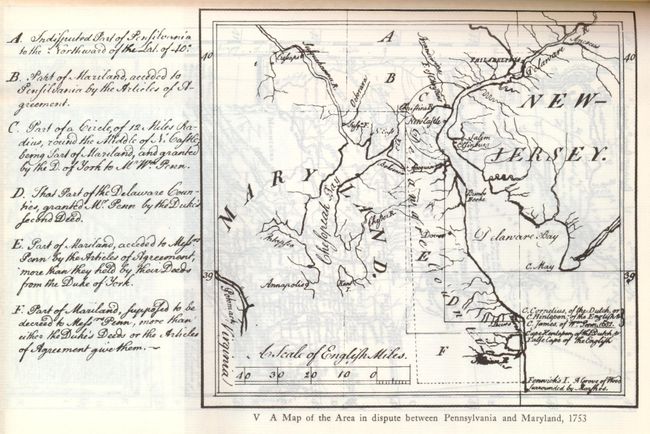 A. Indisputed Part of Pensilvania
to the Northward of the Lat. of 40.°
B. Part of Mariland, acceded to
Pensilvania by the Articles of A-
greement.
C. Part of a Circle, of 12 Miles Ra-
dius, round the Middle of N. Castle,
being Part of Mariland, and granted
by the D. of York to Mr. Wm. Penn.
D. That Part of the Delaware Coun-
ties, granted Mr. Penn by the Duke's
second Deed.
E. Part of Mariland, acceded to Messrs
Penn by the Articles of Agreement,
more than they held by their Deeds
from the Duke of York.
F. Part of Mariland, supposed to be
decreed to Messrs Penn, more than
either the Duke's Deeds or the Articles
of Agreement give them.
40
A
40
PHILADELPHIA
Delaware
B
NEW-
JERSEY.
Salem
MARYLAND.
Chesopeak Bay
Delaware Bay
Dover
E
D
C. May
39
39
Annapolis
Kent
Virginia
F
C. Cornelius, of the Dutch, or
C. Henlopen, of the English &
C. James, of Wm. Penn, 1682.
Cape Henlopen, of the Dutch, &
False Cape of the English
Fenwick's I. A Grove of Wood
surrounded by Marshes.
A Scale of English Miles.
40 30 20 10 0
V A Map of the Area in dispute between Pennsylvania and Maryland, 1753